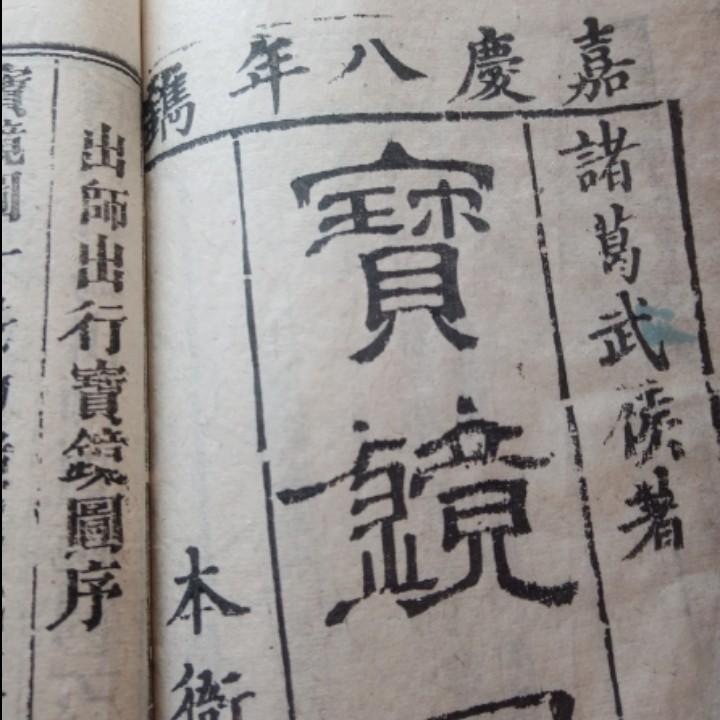 嘉慶八年鐫
諸葛武侯著
寶鏡
本衙
出師出行寶鏡圖序
寶鏡圖